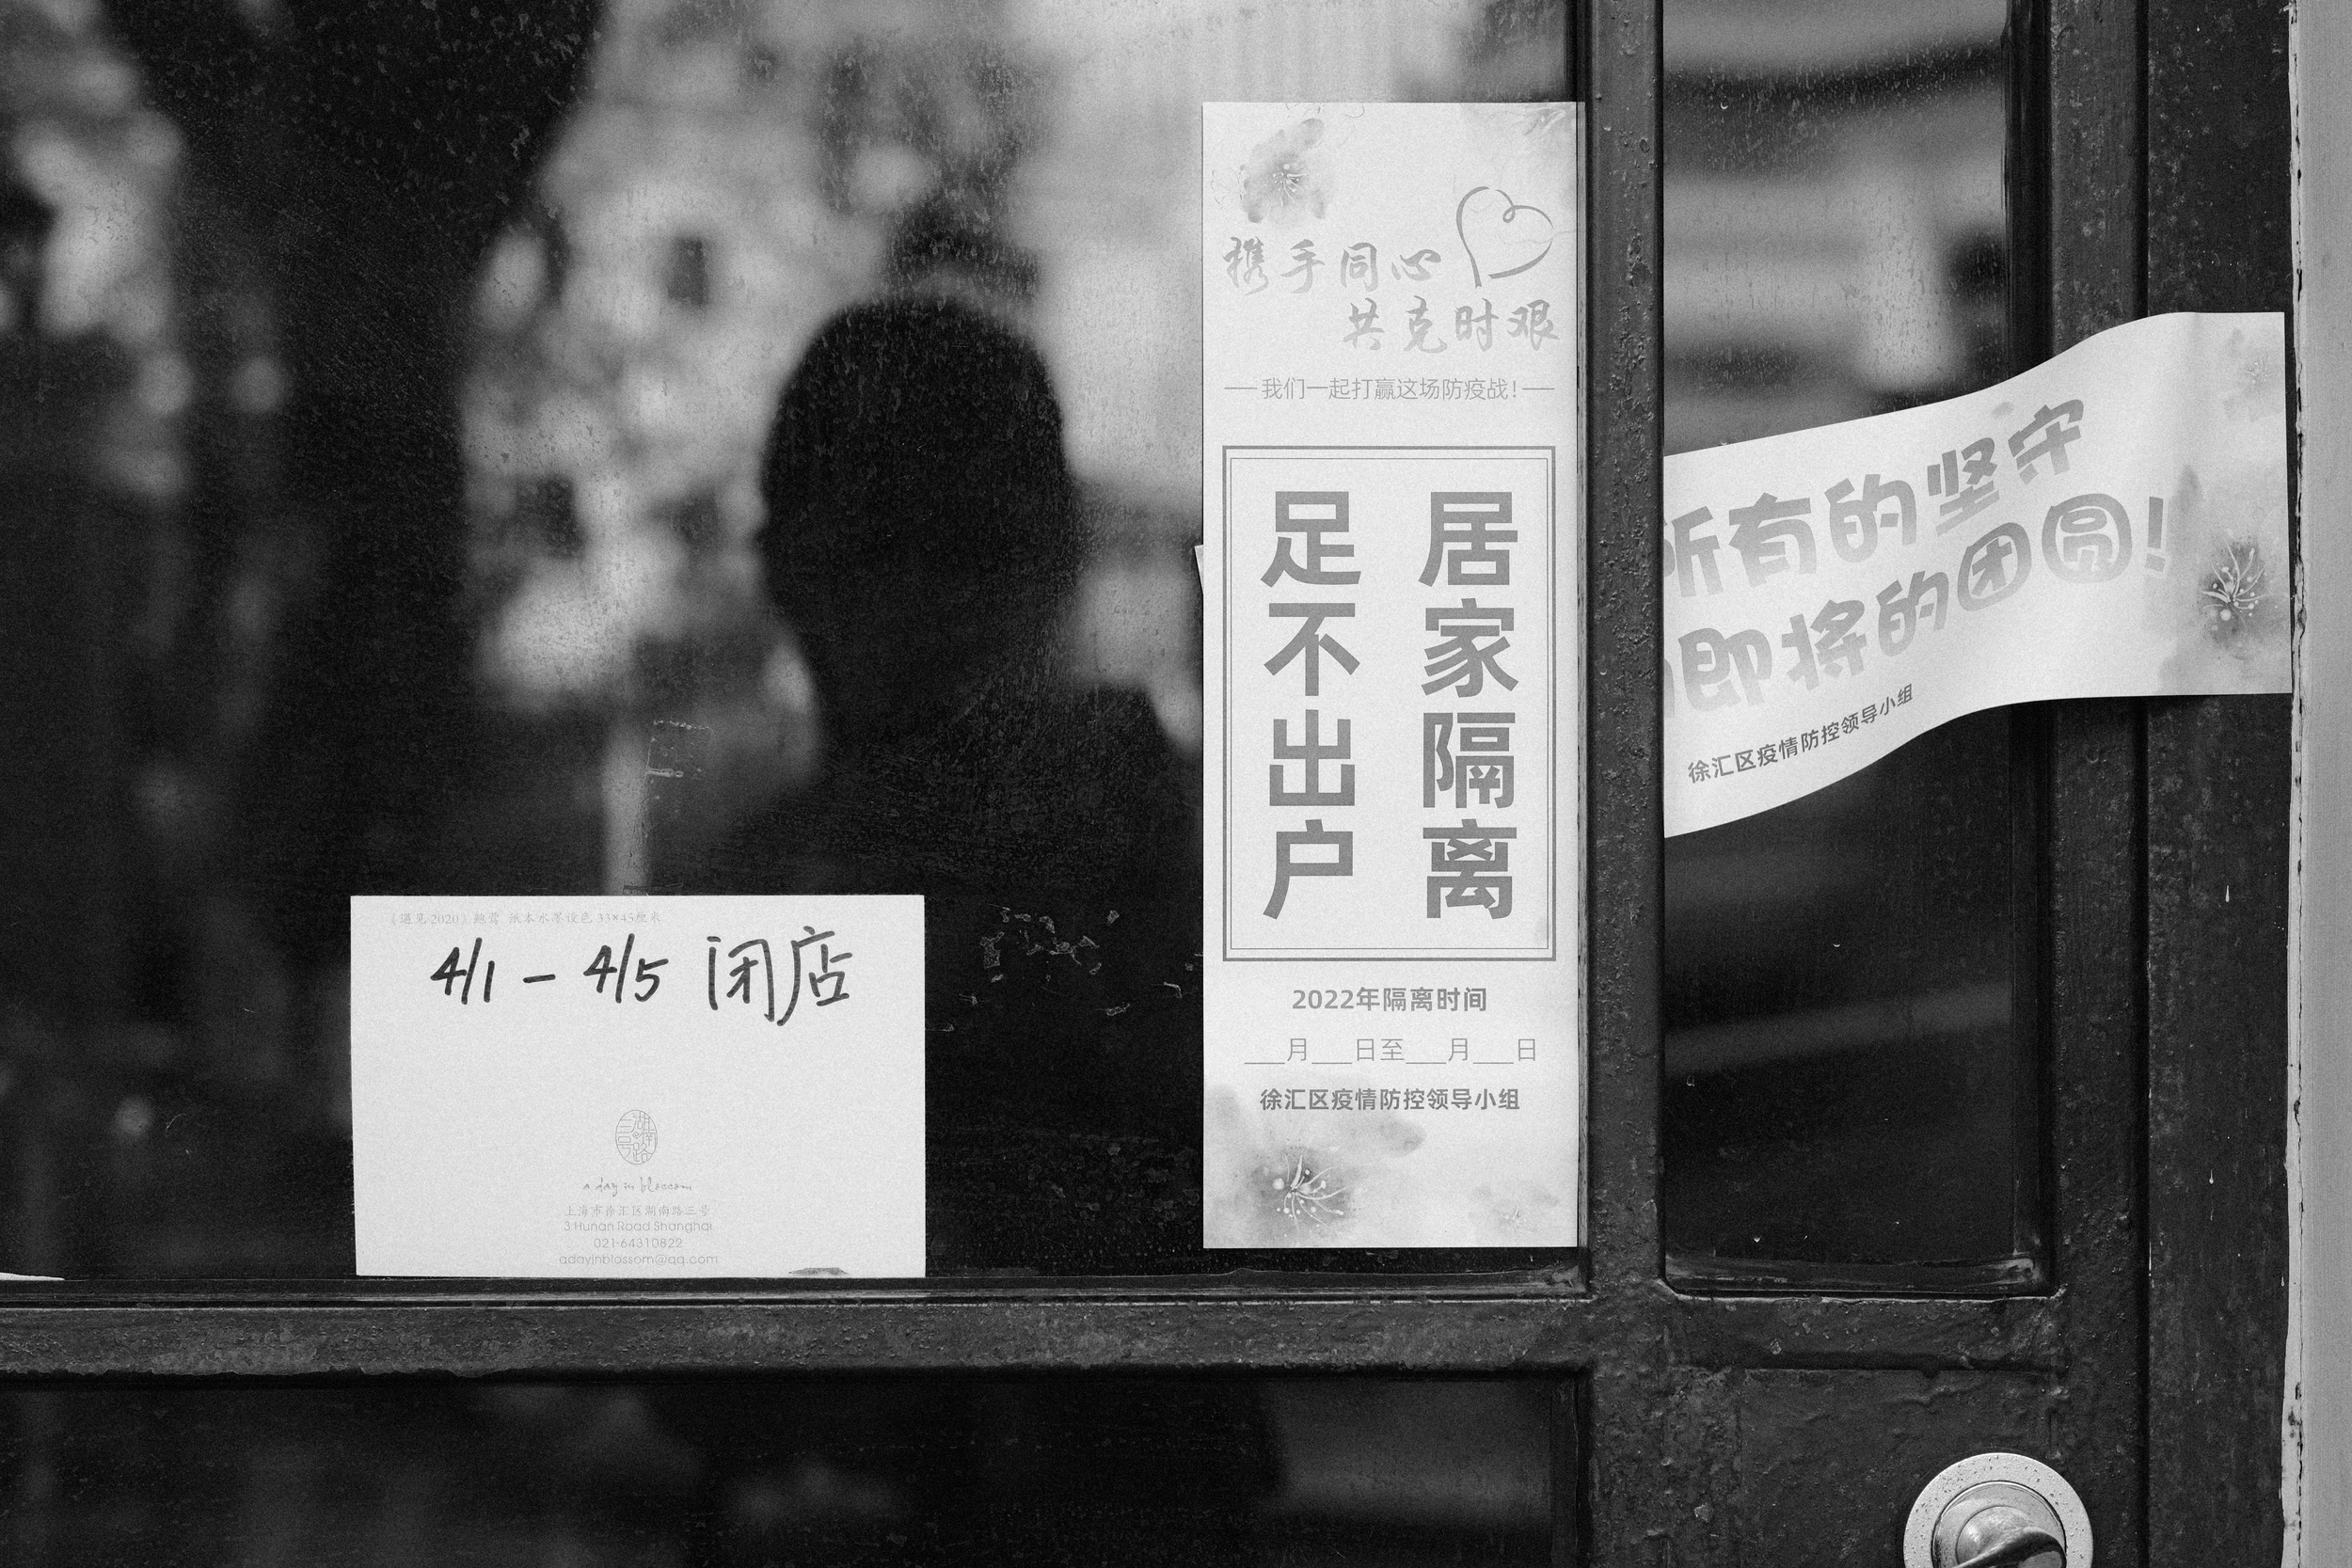 《遇见2020》鲍莺 纸本水墨设色 33×45厘米
4/1 - 4/5 闭店
湖南路三号
a day in blossom
上海市徐汇区湖南路三号
3 Hunan Road Shanghai
021-64310822
adayinblossom@qq.com
携手同心
共克时艰
我们一起打赢这场防疫战!
居家隔离
足不出户
2022年隔离时间
___月___日至___月___日
徐汇区疫情防控领导小组
所有的坚守
即将的团圆!
徐汇区疫情防控领导小组